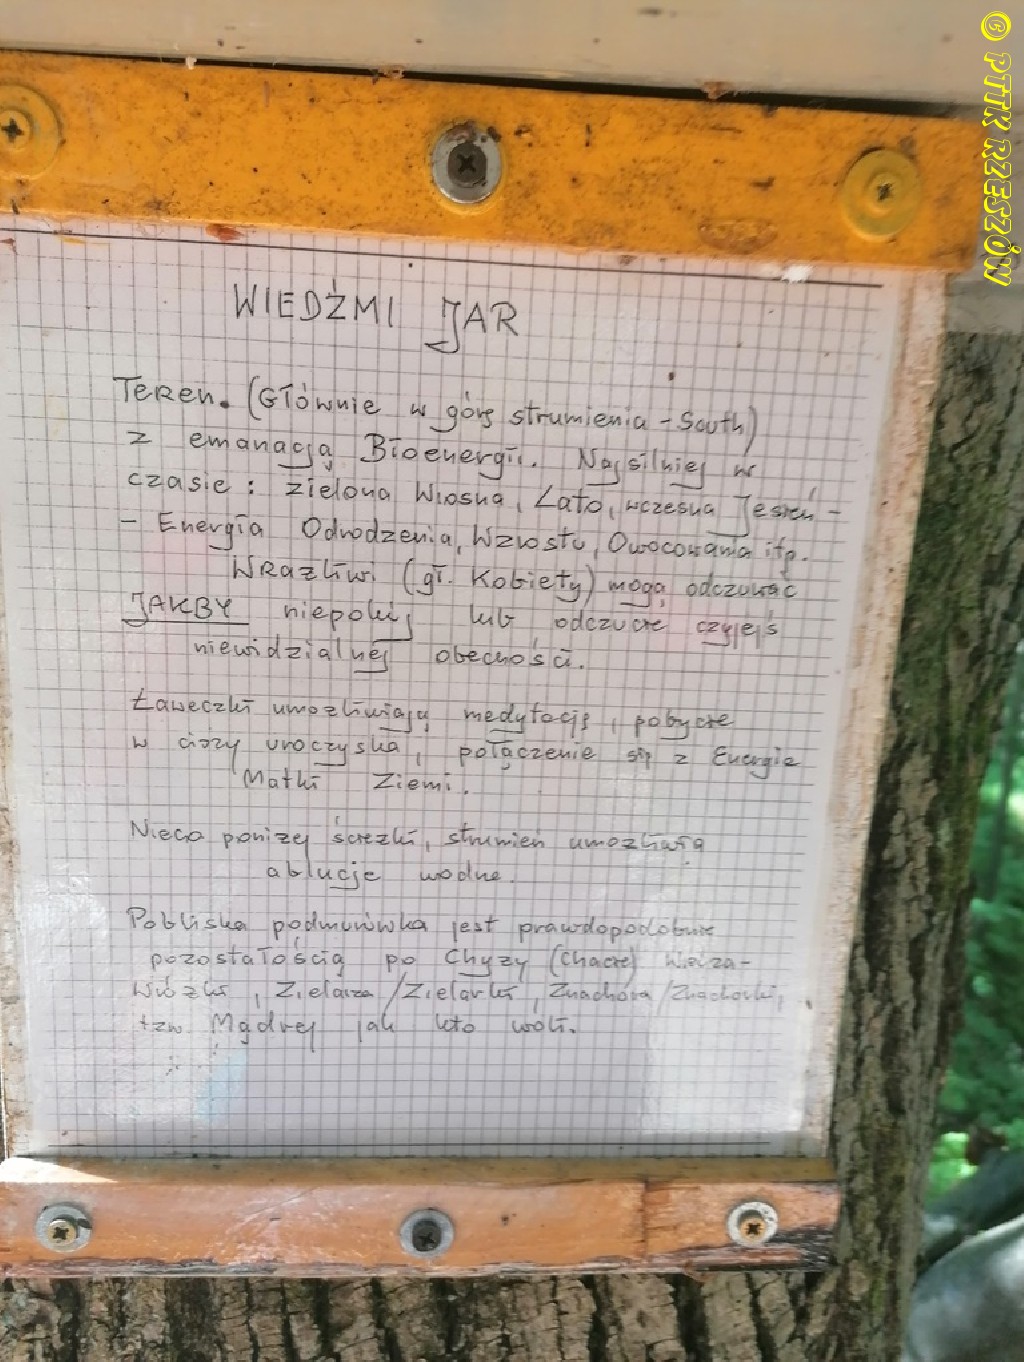 © PTTK RZESZÓW
WIEDŹMI JAR
Teren. (Głównie w górę strumienia - South)
z emanacją Bioenergii. Najsilniej w
czasie: zielona Wiosna, Lato, wczesna Jesień -
- Energia Odrodzenia, Wzrostu, Owocowania itp.
Wrażliwi (gł. Kobiety) mogą odczuwać
JAKBY niepokój lub odczucie czyjejś
niewidzialnej obecności.
Ławeczki umożliwiają medytację, pobycie
w ciszy uroczyska, połączenie się z Energią
Matki Ziemi.
Nieco poniżej ścieżki, strumień umożliwia
ablucje wodne.
Pobliska podmurówka jest prawdopodobnie
pozostałością po Chyzy (chacie)
Zielarza/Zielarki, Znachora/Znachorki,
tzw Mądrej jak kto woli.